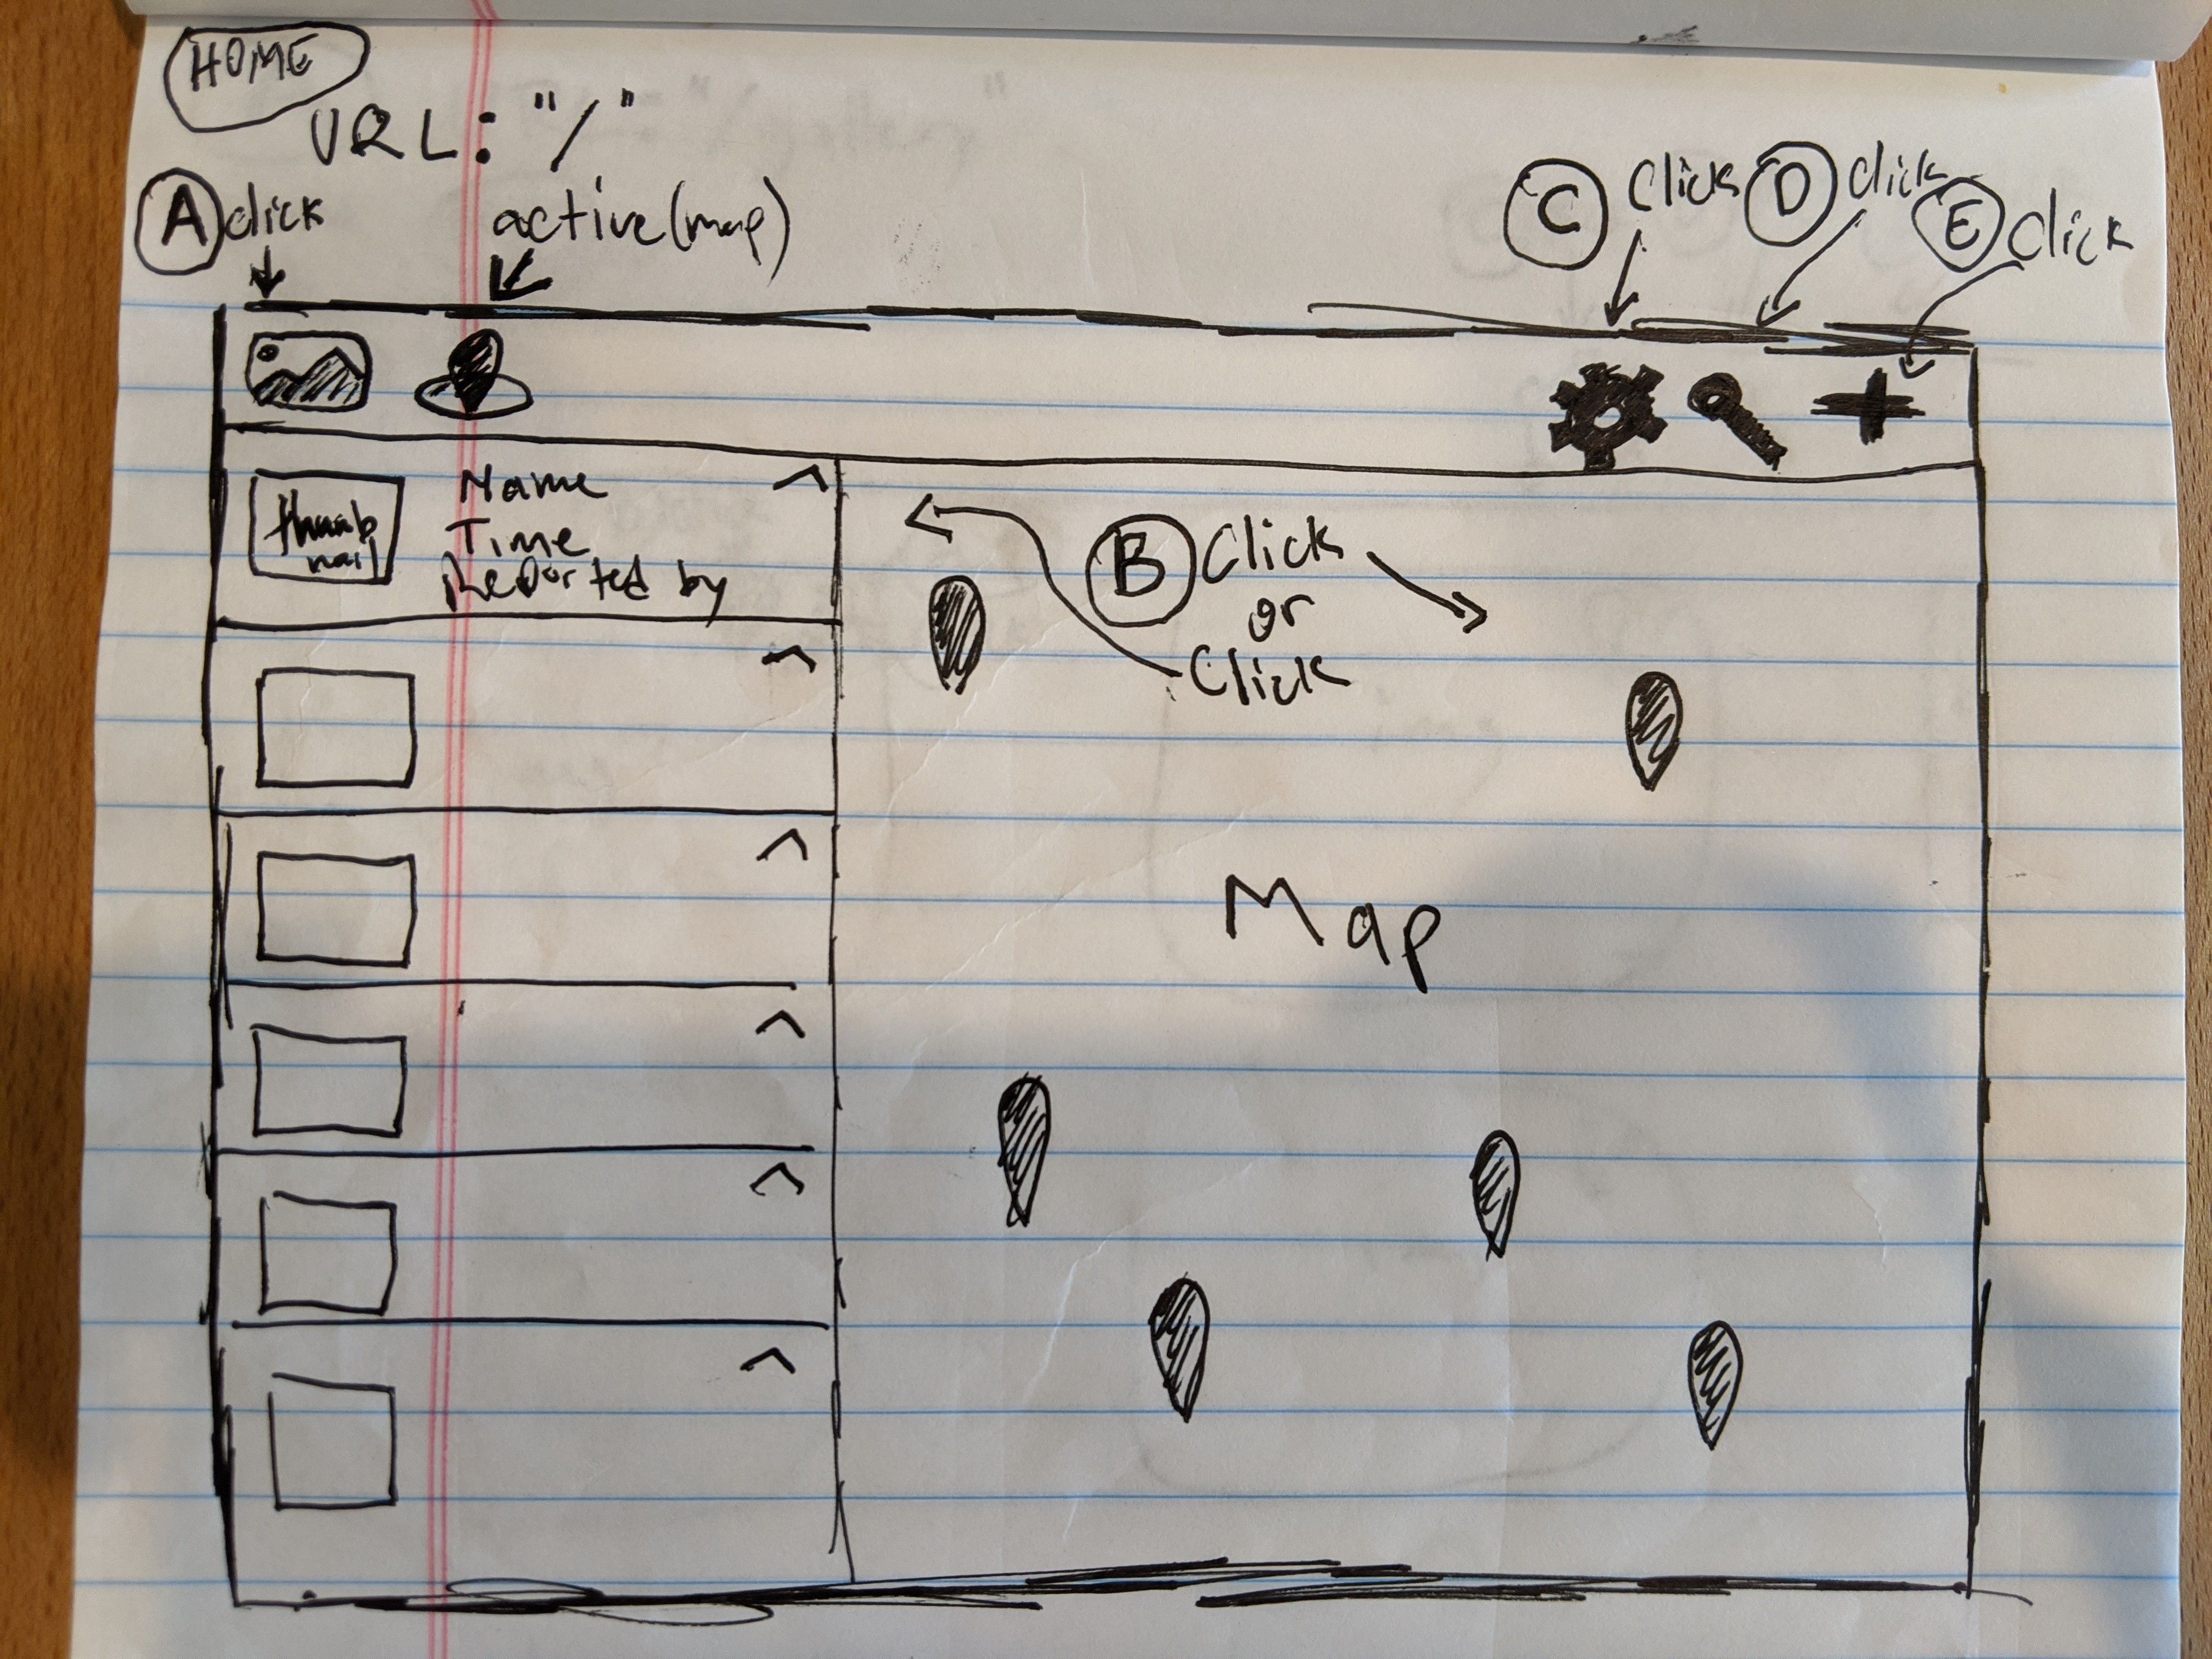 HOME
URL: "/"
A click
active (map)
C Click
D click
E Click
thumb
nail
Name
Time
Reported by
B Click
or
Click
Map